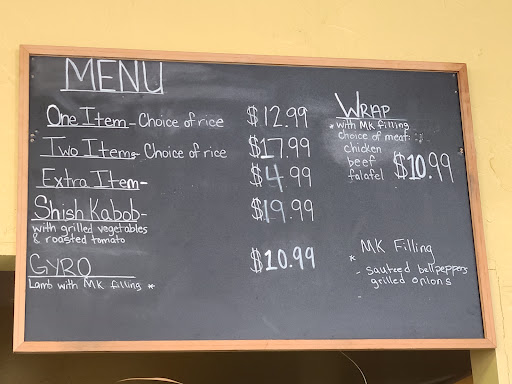 MENU
One Item - Choice of rice $12.99
Two Items - Choice of rice $17.99
Extra Item - $4.99
Shish Kabob - $19.99
with grilled vegetables
& roasted tomato
GYRO $10.99
Lamb with MK filling *
WRAP
* with MK filling
choice of meat:
chicken
beef
falafel $10.99
MK Filling
*
- sauteed bellpeppers
grilled onions
-